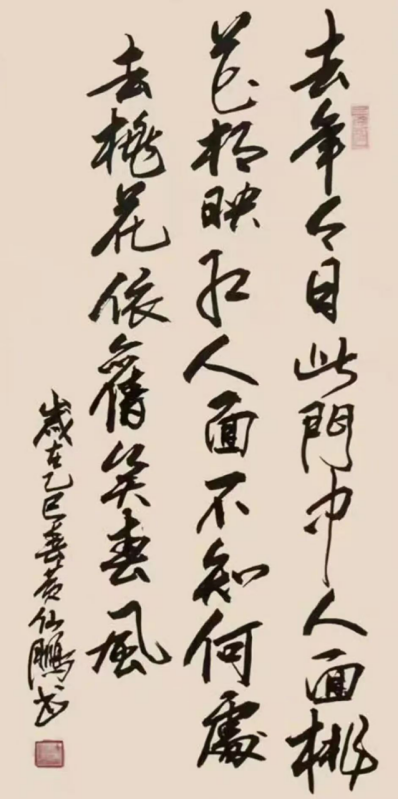 去年今日此門中人面桃
花相映紅人面不知何處
去桃花依舊笑春風
歲在乙巳春黄仙鵬书